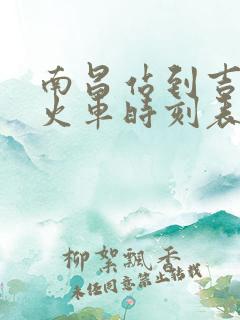 南昌站到吉
火車時刻表
柳絮飄香
未经同意禁止转载